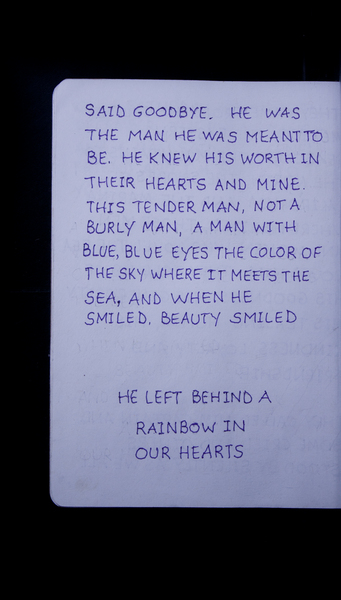 SAID GOODBYE. HE WAS
THE MAN HE WAS MEANT TO
BE. HE KNEW HIS WORTH IN
THEIR HEARTS AND MINE.
THIS TENDER MAN, NOT A
BURLY MAN, A MAN WITH
BLUE, BLUE EYES THE COLOR OF
THE SKY WHERE IT MEETS THE
SEA, AND WHEN HE
SMILED, BEAUTY SMILED
HE LEFT BEHIND A
RAINBOW IN
OUR HEARTS